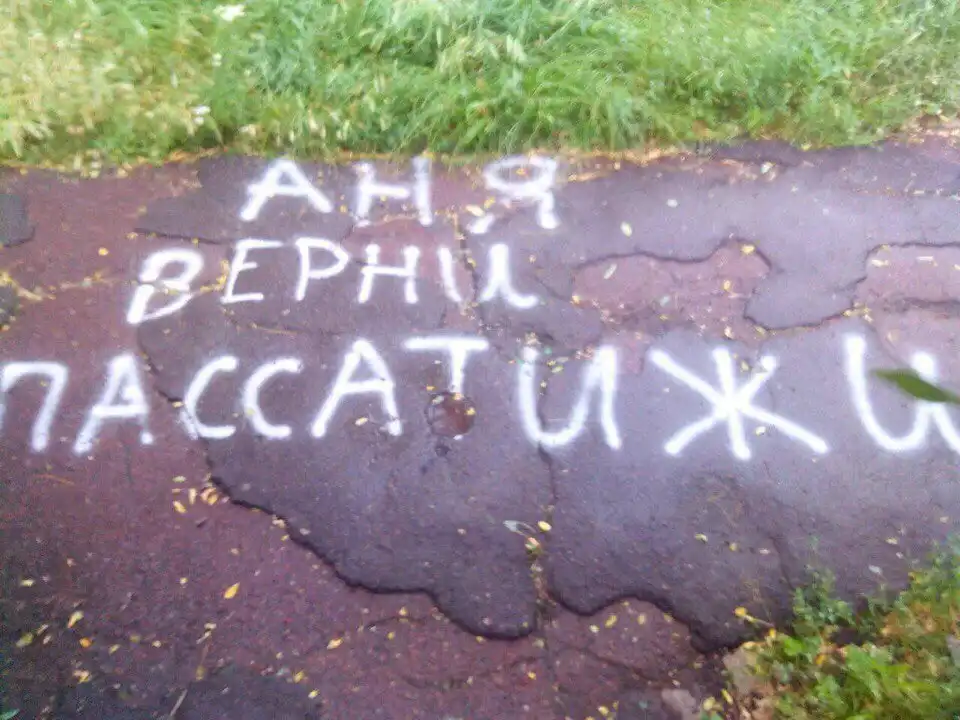 АНЯ
ВЕРНИ
ПАССАТИЖИ